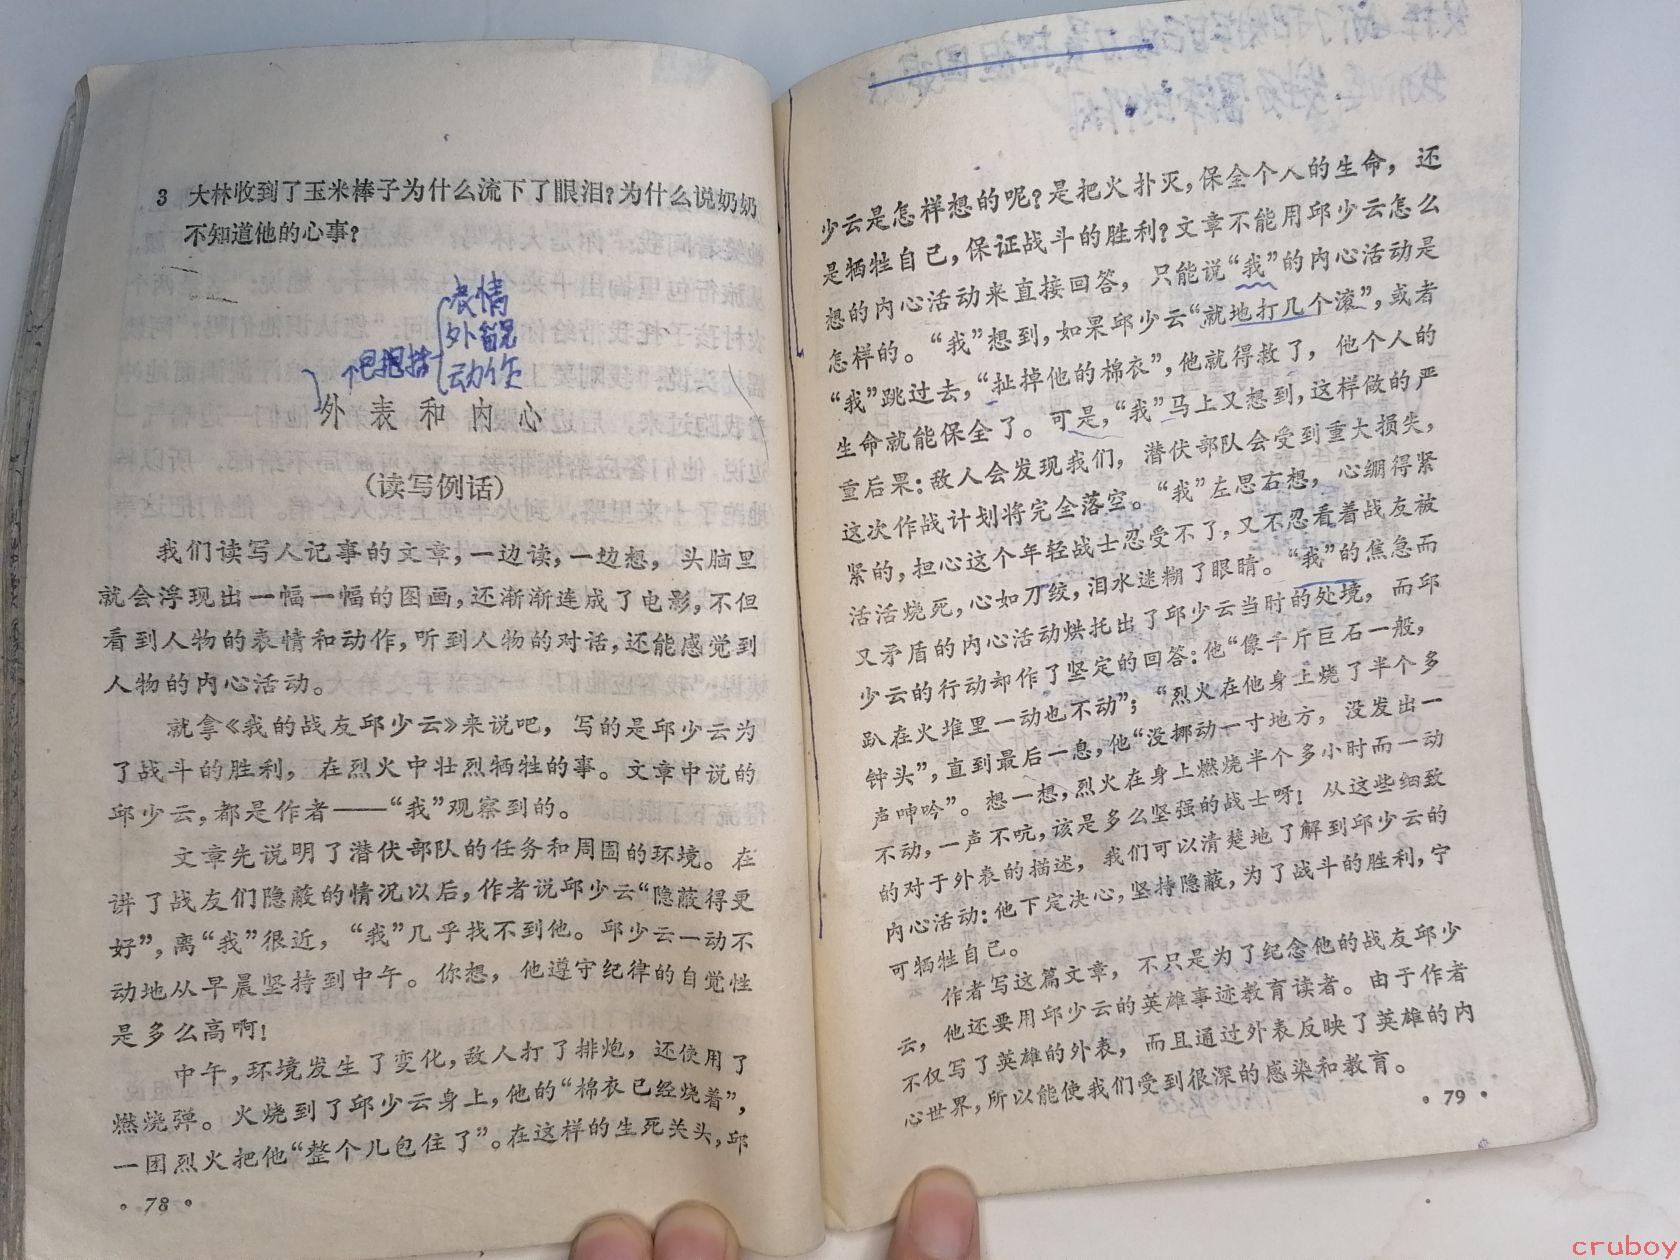 3 大林收到了玉米棒子为什么流下了眼泪?为什么说奶奶
不知道他的心事?
表情
外貌
包括
动作
外表和内心
(读写例话)
我们读写人记事的文章,一边读,一边想,头脑里
就会浮现出一幅一幅的图画,还渐渐连成了电影,不但
看到人物的表情和动作,听到人物的对话,还能感觉到
人物的内心活动。
就拿《我的战友邱少云》来说吧,写的是邱少云为
了战斗的胜利,在烈火中壮烈牺牲的事。文章中说的
邱少云,都是作者——“我”观察到的。
文章先说明了潜伏部队的任务和周围的环境。在
讲了战友们隐蔽的情况以后,作者说邱少云“隐蔽得更
好”,离“我”很近,“我”几乎找不到他。邱少云一动不
动地从早晨坚持到中午。你想,他遵守纪律的自觉性
是多么高啊!
中午,环境发生了变化,敌人打了排炮,还使用了
燃烧弹。火烧到了邱少云身上,他的“棉衣已经烧着”,
一团烈火把他“整个儿包住了”。在这样的生死关头,邱
·78·
少云是怎样想的呢?是把火扑灭,保全个人的生命,还
是牺牲自己,保证战斗的胜利?文章不能用邱少云怎么
想的内心活动来直接回答,只能说“我”的内心活动是
怎样的。“我”想到,如果邱少云“就地打几个滚”,或者
“我”跳过去,“扯掉他的棉衣”,他就得救了,他个人的
生命就能保全了。可是,“我”马上又想到,这样做的严
重后果:敌人会发现我们,潜伏部队会受到重大损失,
这次作战计划将完全落空。“我”左思右想,心绷得紧
紧的,担心这个年轻战士忍受不了,又不忍看着战友被
活活烧死,心如刀绞,泪水迷糊了眼睛。“我”的焦急而
又矛盾的内心活动烘托出了邱少云当时的处境,而邱
少云的行动却作了坚定的回答:他“像千斤巨石一般,
趴在火堆里一动也不动”;“烈火在他身上烧了半个多
钟头”,直到最后一息,他“没挪动一寸地方,没发出一
声呻吟”。想一想,烈火在身上燃烧半个多小时而一动
不动,一声不吭,该是多么坚强的战士呀!从这些细致
的对于外表的描述,我们可以清楚地了解到邱少云的
内心活动:他下定决心,坚持隐蔽,为了战斗的胜利,宁
可牺牲自己。
作者写这篇文章,不只是为了纪念他的战友邱少
云,他还要用邱少云的英雄事迹教育读者。由于作者
不仅写了英雄的外表,而且通过外表反映了英雄的内
心世界,所以能使我们受到很深的感染和教育。
·79·
cruboy